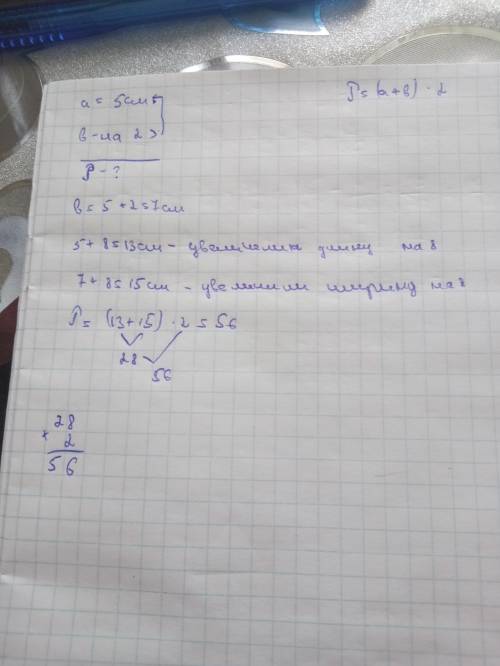 a = 5см
P = (a + в) · 2
в - на 2 >
P - ?
в = 5 + 2 = 7см
5 + 8 = 13см - увеличили длину на 8
7 + 8 = 15см - увеличили ширину на 8
P = (13 + 15) · 2 = 56
28
56
28
× 2
56